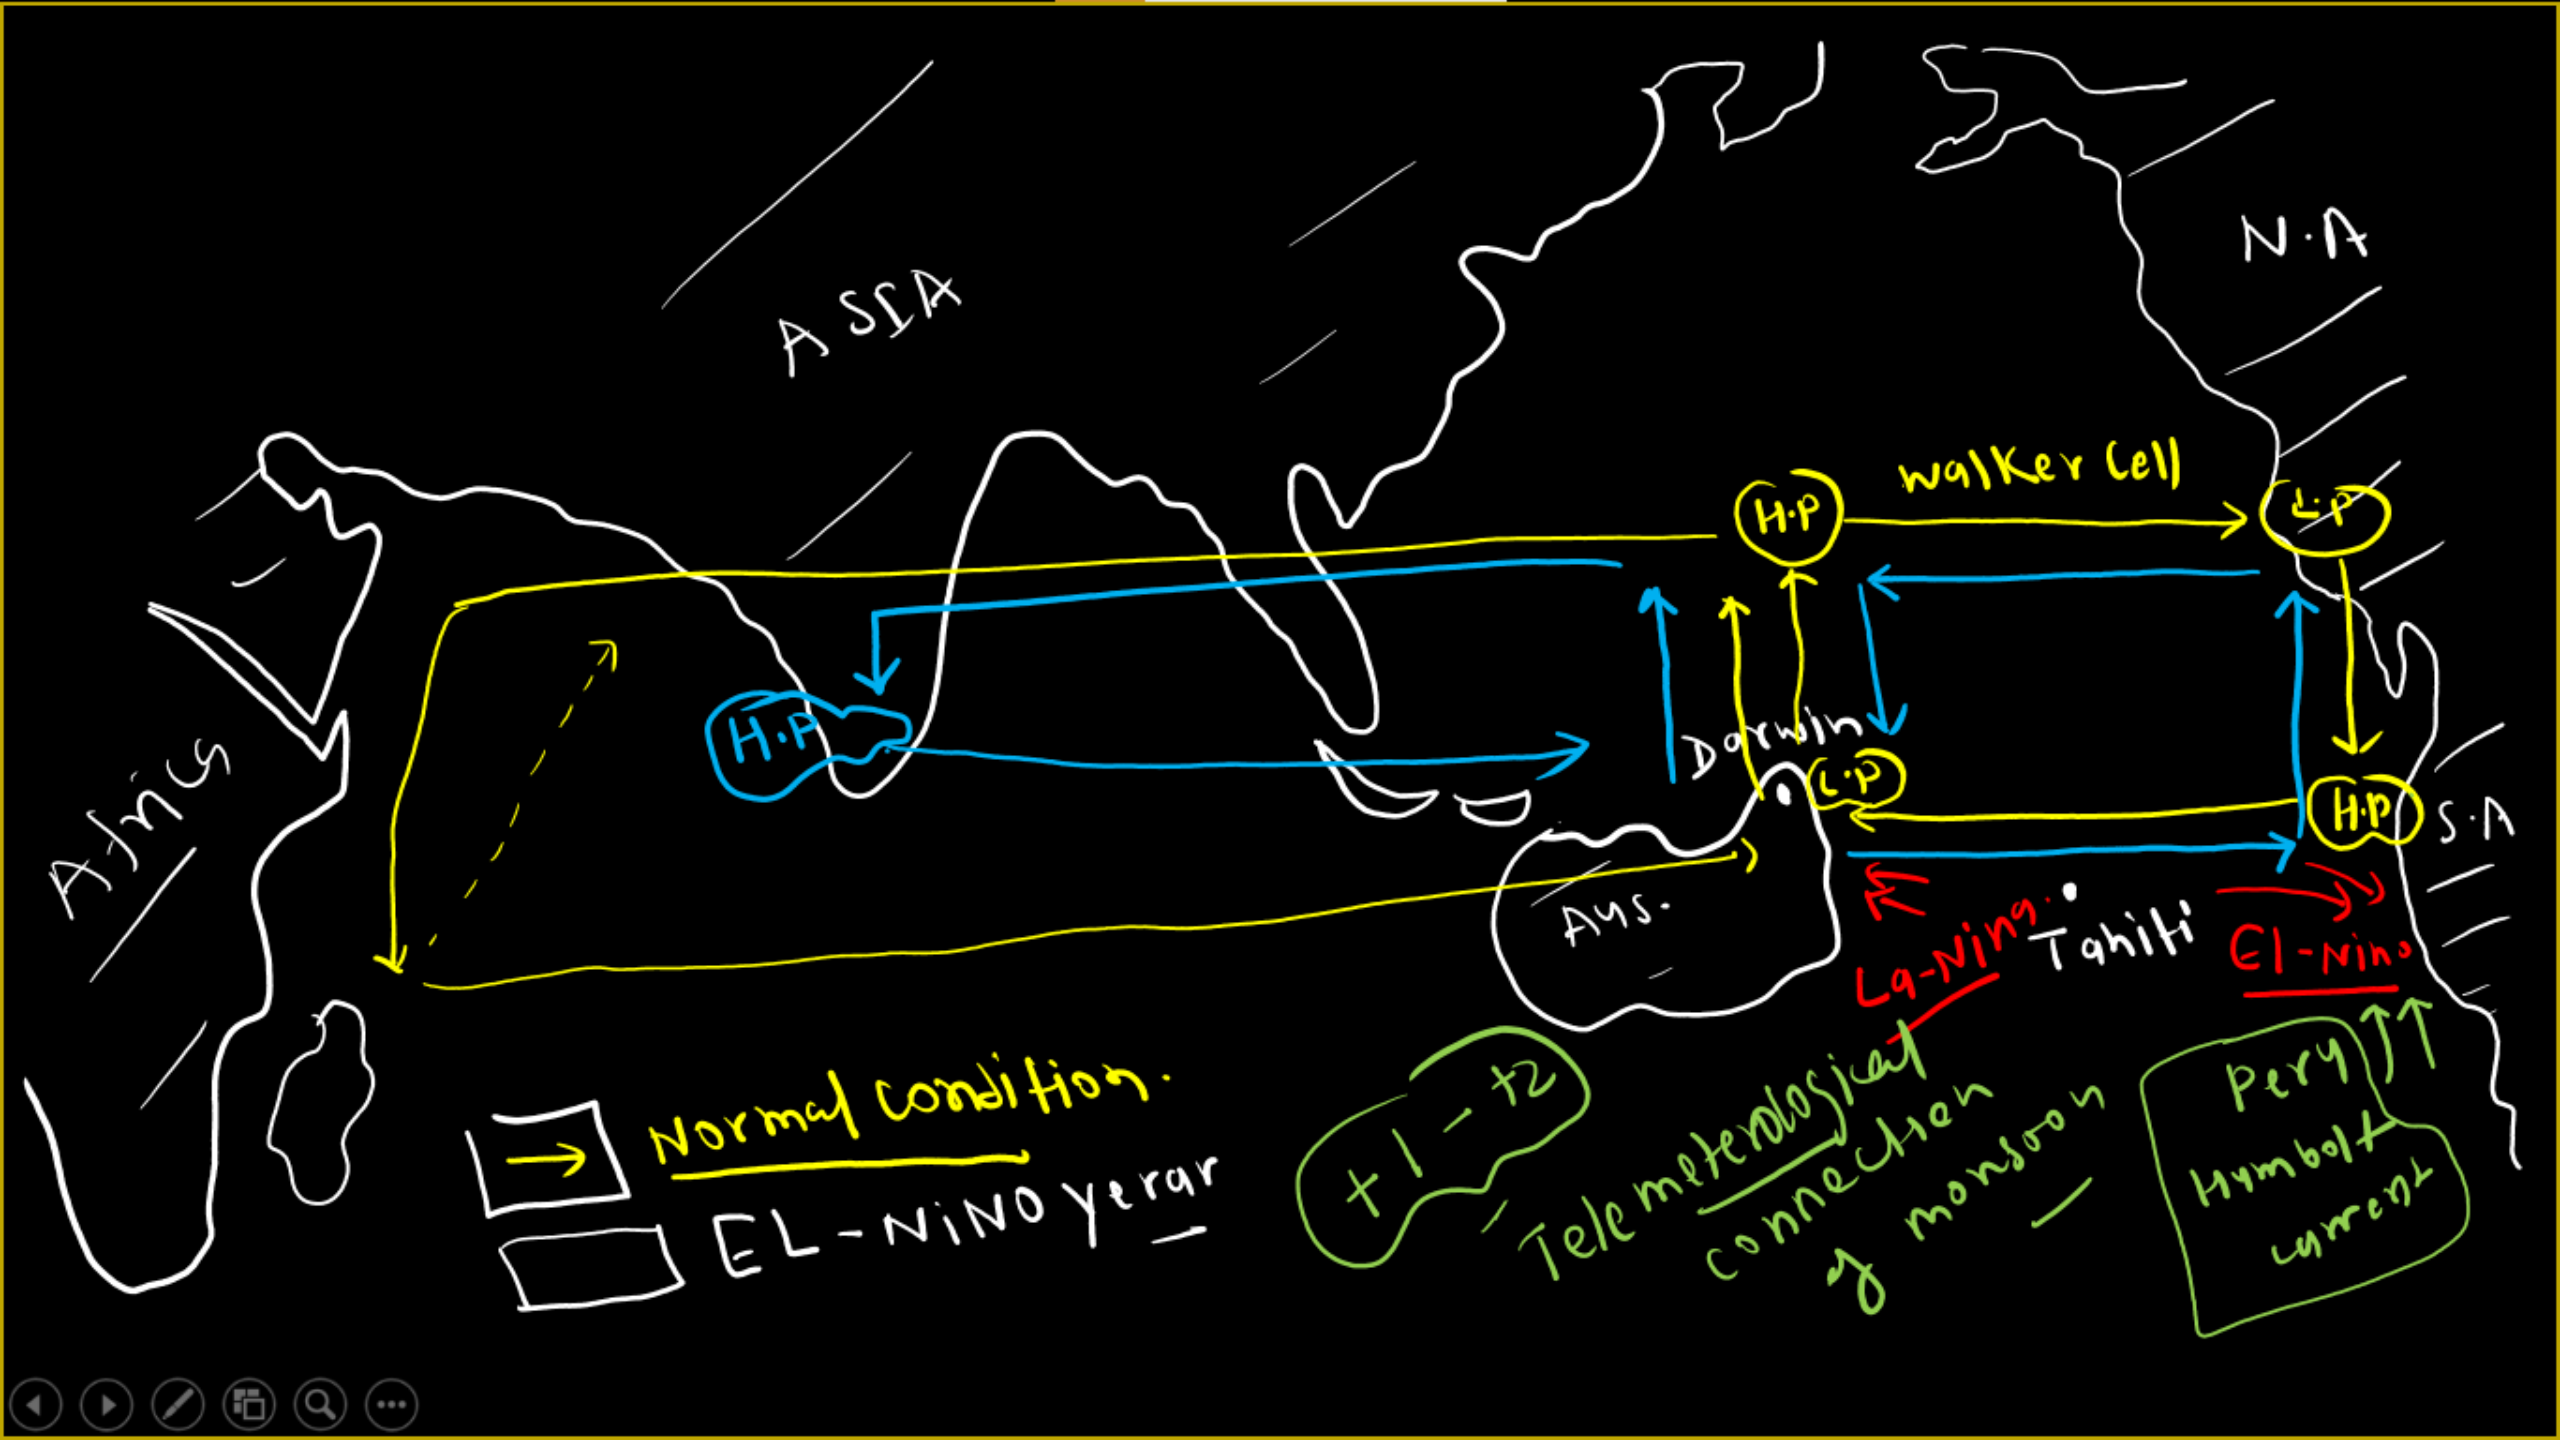 N.A
ASIA
Walker Cell
H.P
L.P
H.P
Darwin
L.P
H.P
S.A
Africa
Aus.
La-Nina.
Tahiti
El-Nino
Normal condition.
EL-NINO yerar
+1 - +2
Telemeterological
connection
of monsoon
Peru
Humbolt
current